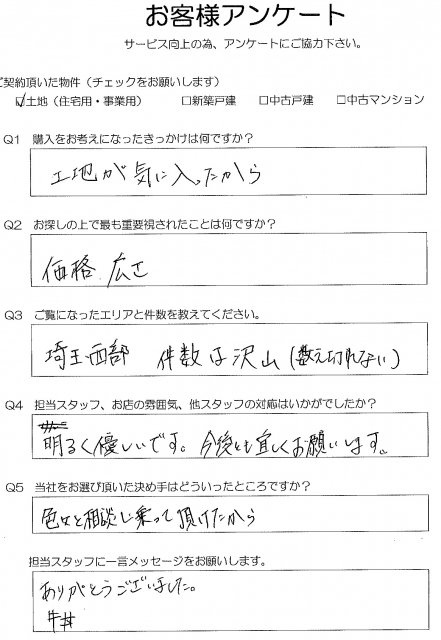 お客様アンケート
サービス向上の為、アンケートにご協力下さい。
ご契約頂いた物件（チェックをお願いします）
☑土地（住宅用・事業用） □新築戸建 □中古戸建 □中古マンション
Q1 購入をお考えになったきっかけは何ですか？
土地が気に入ったから
Q2 お探しの上で最も重要視されたことは何ですか？
価格 広さ
Q3 ご覧になったエリアと件数を教えてください。
埼玉西部 件数は沢山（数え切れない）
Q4 担当スタッフ、お店の雰囲気、他スタッフの対応はいかがでしたか？
明るく優しいです。今後とも宜しくお願いします。
Q5 当社をお選び頂いた決め手はどういったところですか？
色々と相談に乗って頂けたから
担当スタッフに一言メッセージをお願いします。
ありがとうございました。